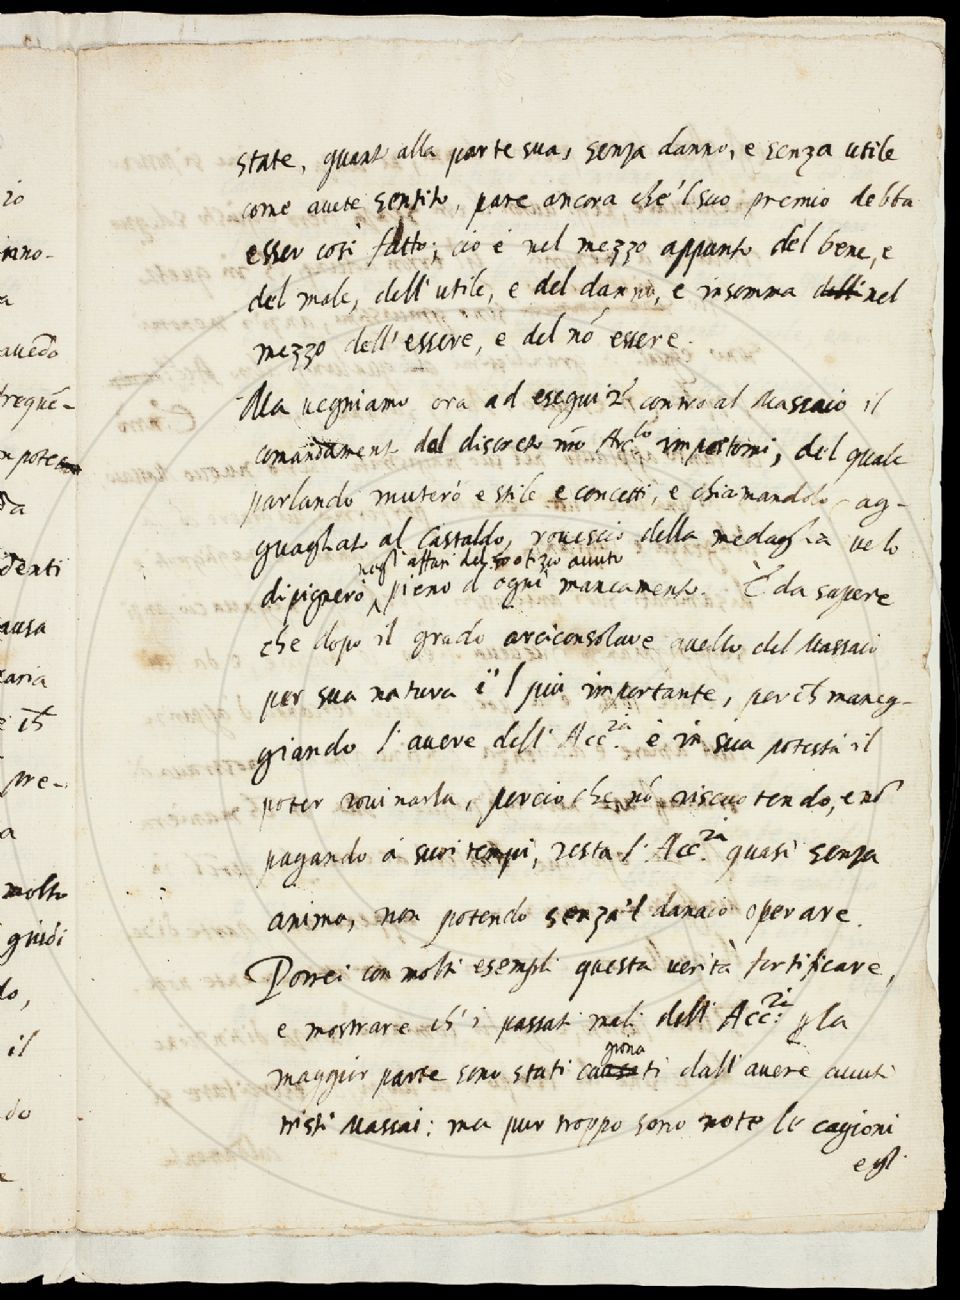 io
inno-
a
avedo
freque-
n potea
da
denti
ausa
caria
e ch
pre-
a
molto
guidi
lo,
il
do
e
state, quant'alla parte sua, senza danno, e senza utile
come avete sentito, pare ancora che'l suo premio debba
esser così fatto; ciò è nel mezzo appunto del bene, e
del male, dell'utile, e del danno, e insomma dell' nel
mezzo dell'essere, e del nō essere.
Ma vegniamo ora ad eseguire contro al Massaio il
comandamento del discreto nrō Arc.lo impostomi, del quale
parlando muterò e stile e concetti, e chiamandolo ag-
guagliato al Castaldo, rovescio della medaglia ve lo
negl'affari del offizio avuto
dipignerò pieno d'ogni mancamento. È da sapere
che dopo il grado arciconsolare quello del Massaio
per sua natura è 'l più importante, perch maneg-
giando l'avere dell'Acc.ia è in sua potestà il
poter rovinarla, perciò che nō riscuotendo, e nō
pagando a suoi tempi, resta l'Acc.ia quasi senza
anima, non potendo senza'l danaio operare.
Potrei con molti esempli questa verità fortificare,
e mostrare ch'i passati mali dell'Acc.ia p la
giona
maggior parte sono stati causati dall'avere avuti
tristi Massai: ma pur troppo sono note le cagioni
egl